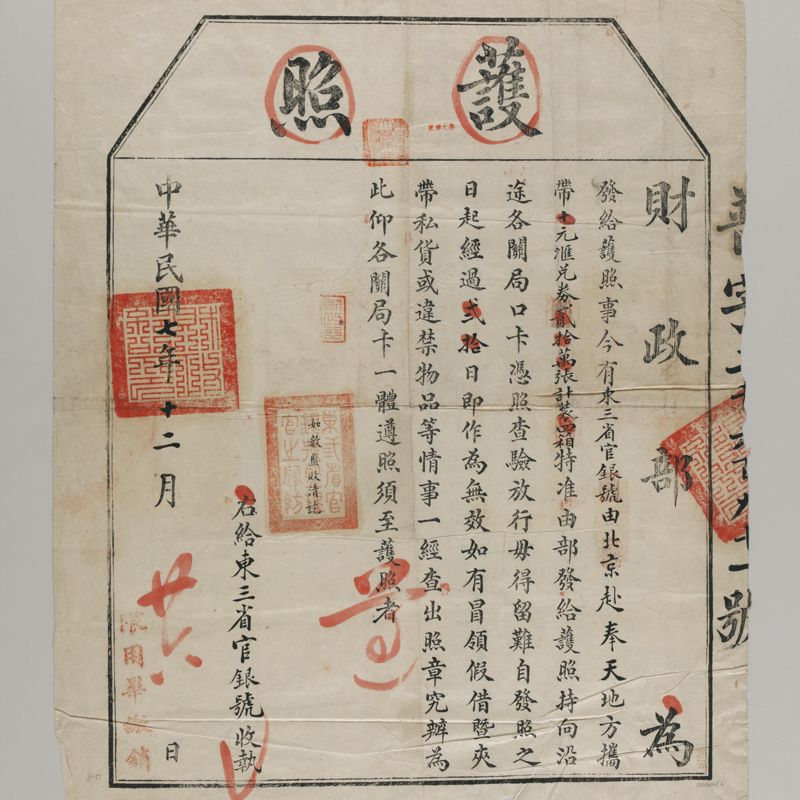 護照
財政部為
發給護照事今有東三省官銀號由北京赴奉天地方攜
帶十元滙兌券貳拾萬張計裝四箱特准由部發給護照持向沿
途各關局口卡憑照查驗放行毋得留難自發照之
日起經過弍拾日即作為無效如有冒領假借暨夾
帶私貨或違禁物品等情事一經查出照章究辦為
此仰各關局卡一體遵照須至護照者
右給東三省官銀號收執
中華民國七年十二月廿六日
限用畢繳銷
如數監收清訖